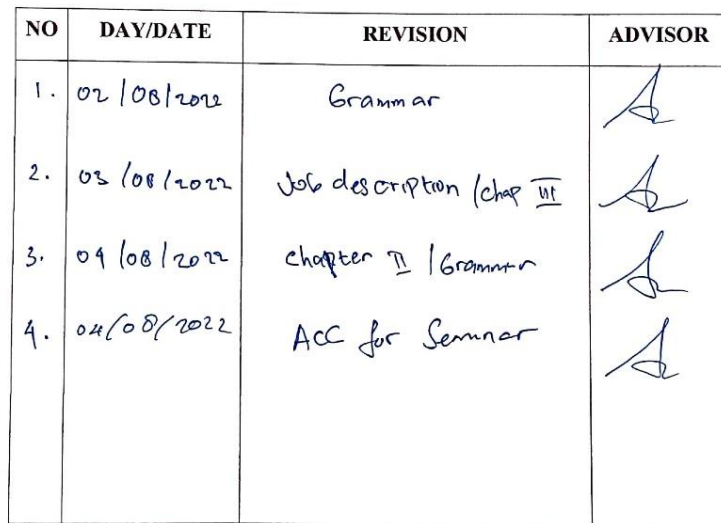 NO DAY/DATE REVISION ADVISOR
1. 02/08/2022 Grammar
2. 03/08/2022 Job description /chap III
3. 04/08/2022 chapter II / Grammar
4. 04/08/2022 ACC for Seminar